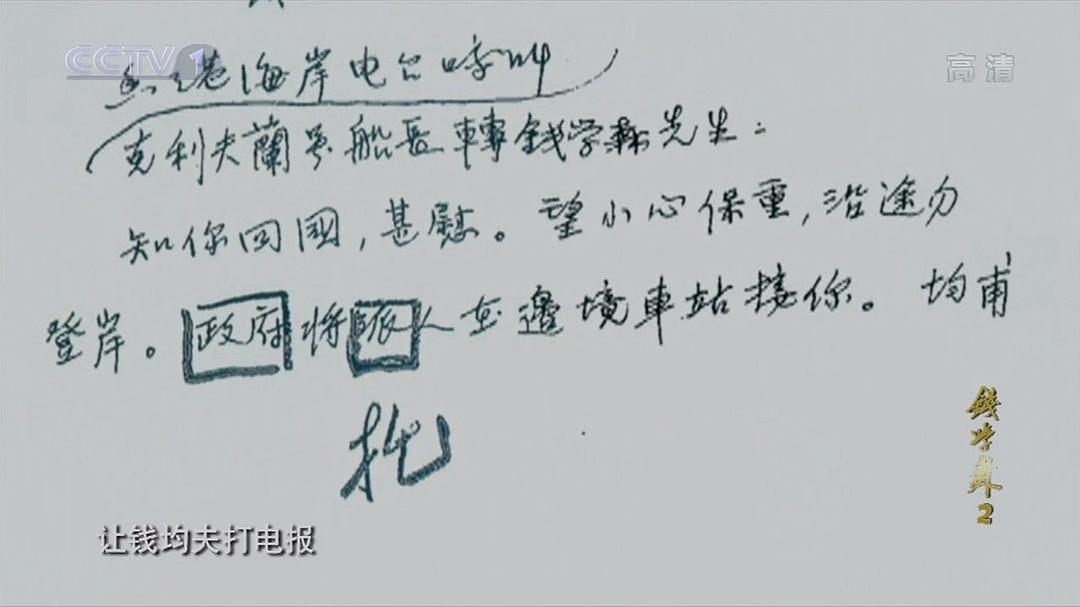 CCTV 1
高清
香港海岸电台呼叫
克利夫蘭号船長轉錢学森先生：
知你回國，甚慰。望小心保重，沿途勿
登岸。政府将派人在邊境車站接你。均甫
托
錢学森2
让钱均夫打电报